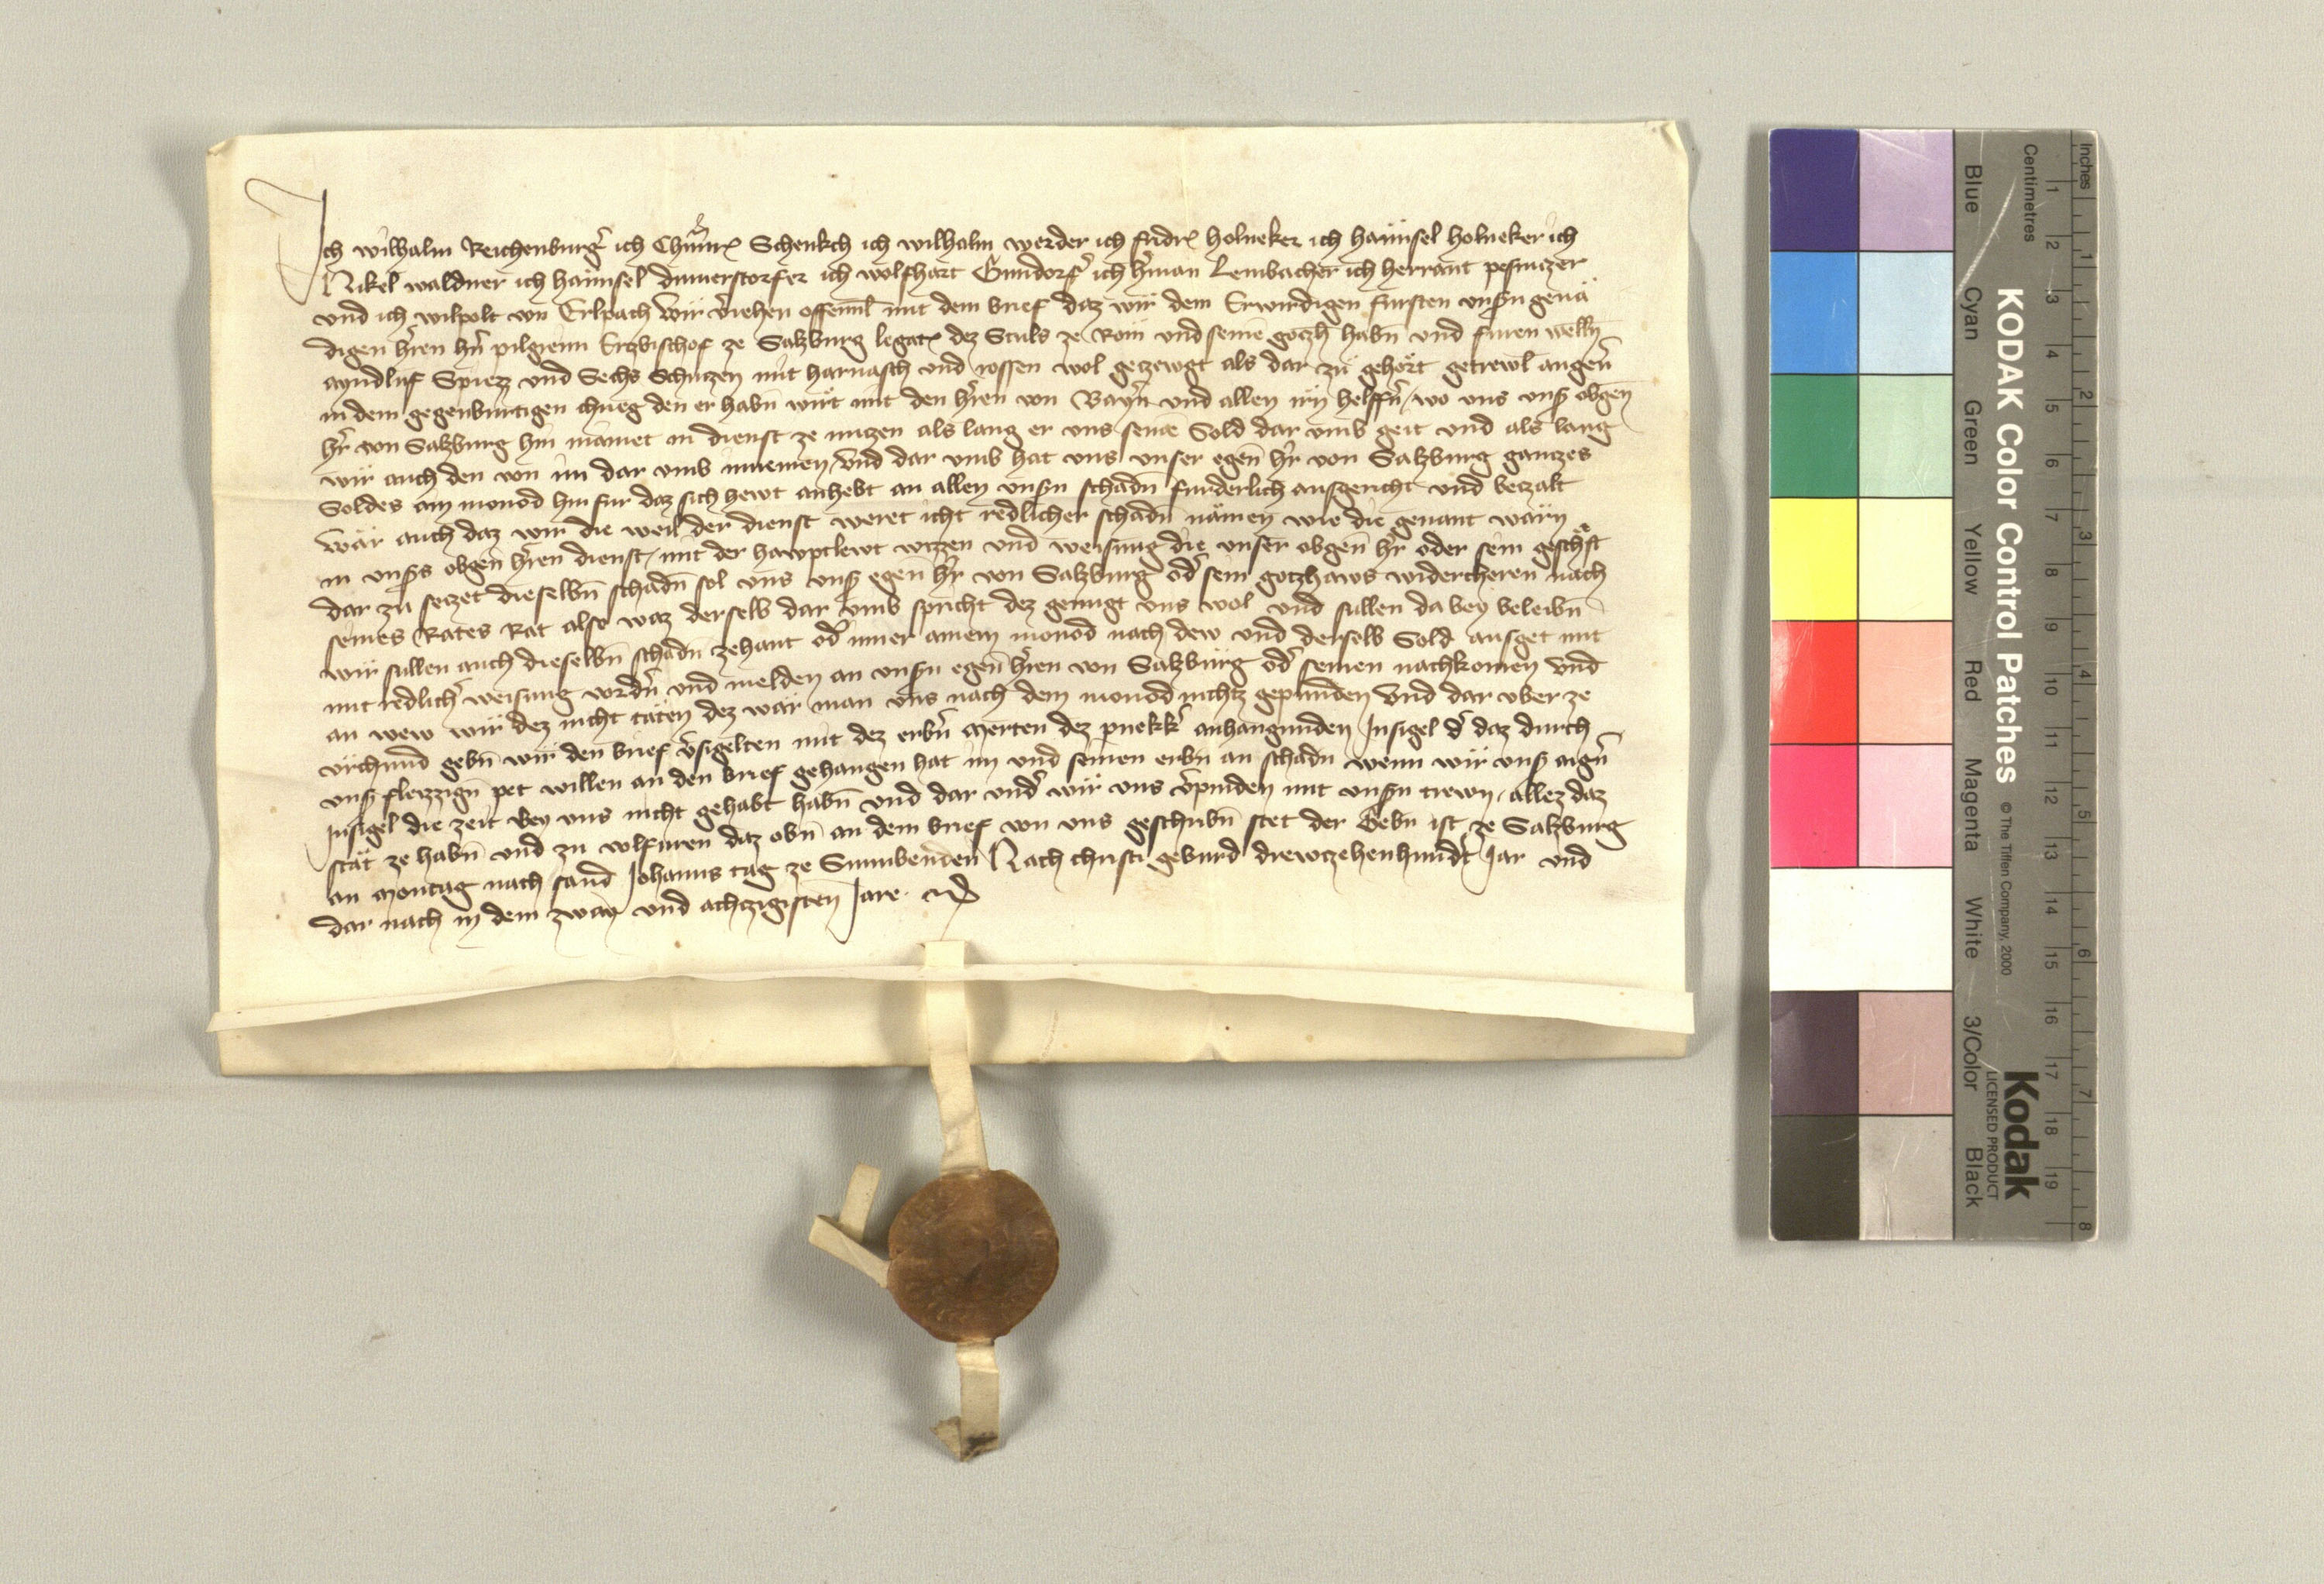 Ich wilhalm Reichenburgˀ ich Chunrˀ Schenkch ich wilhalm werder ich fridrˀ holneker ich häinsel holneker ich
Nikel waldner ich häinsel dinnerstorfer ich wolfhart Gundorfˀ ich hˀman Lembacher ich herrant pesnitzer
und ich wilpolt von Erlpach wir vˀiehen offennl mit dem brief daz wir dem Erwirdigen fürsten unsˀn genä
digen hˀren hˀn pilgreim Ertzbischof ze Salzburg legatˀ dez Stuls ze Rom und seine gotzh habn̄ und füren welln̄
ayndluf Spiezz und Sechs Schutzen mit harnasch und rossen wol getzewgt als dar zü gehört getrewl angeūˀ
in dem gegenburtigen chrieg den er habn̄ wirt mit den hˀren von Bayrn und allen irn helffˀn / wo uns unsˀ obgen̄
hˀr von Salzburg hin mäinet in dienst ze nutzen als lang er uns seine Sold dar umb geit und als lang
wir auch den von im dar umb innemen / Und dar umb hat uns unser egen̄ hˀr von Salzburg gantzes
Soldes ain monod hinfur daz sich hewt anhebt an allen unsˀn schadn̄ fürderlich ausgericht und betzalt
Wär auch daz wir die weil der dienst weret icht redlicher schadn̄ nämen wie die genant wärn
in unsˀs obgen̄ hˀren dienst / mit der hawptlewt wizzen und weisung die unser obgen̄ hˀr oder sein geschäft
dar zü setzet dieselbn̄ schadn̄ sol uns unsˀ egen̄ hˀr von Salzburg odˀ sein gotzhaws widercheren nach
seines Rates Rat also waz derselb dar umb spricht dez genugt uns wol und sullen da bey beleibn̄
Wir sullen auch dieselbn̄ schadn̄ zehant odˀ inner ainem monod nach dew und derselb Sold ausget mit
mit redlichˀ weisung vordˀn und melden an unsˀn egen̄ hˀren von Salzburg odˀ seinen nachkomen Und
an wew wir dez nicht täten dez wär man uns nach dem monod nichtz gepunden Und dar uber ze
Urchund gebn̄ wir den brief vˀsigelten mit dez erbˀn Merten dez pnekkˀ anhangunden Insigel dˀ daz durch
unsˀ fleizzign̄ pet willen an den brief gehangen hat im und seinen erbn̄ an schadn̄ wenn wir unsˀ aignˀ
Insigel die zeit bey uns nicht gehabt habn̄ und dar undˀ wir uns vˀpinden mit unsˀn trewn / allez daz
stät ze habn̄ und zu volfüren daz obn̄ an dem brief von uns geschribn̄ stet der Gebn̄ ist ze Salzburg
an Montag nach sand Johanns tag ze Sunnbenden Nach christi geburd drewtzehenhundˀt Jar und
dar nach in dem zway und achtzigisten Jare.
KODAK Color Control Patches © The Tiffen Company, 2000
Kodak
LICENSED PRODUCT
Blue Cyan Green Yellow Red Magenta White 3/Color Black
Centimetres 1 2 3 4 5 6 7 8 9 10 11 12 13 14 15 16 17 18 19
Inches 1 2 3 4 5 6 7 8